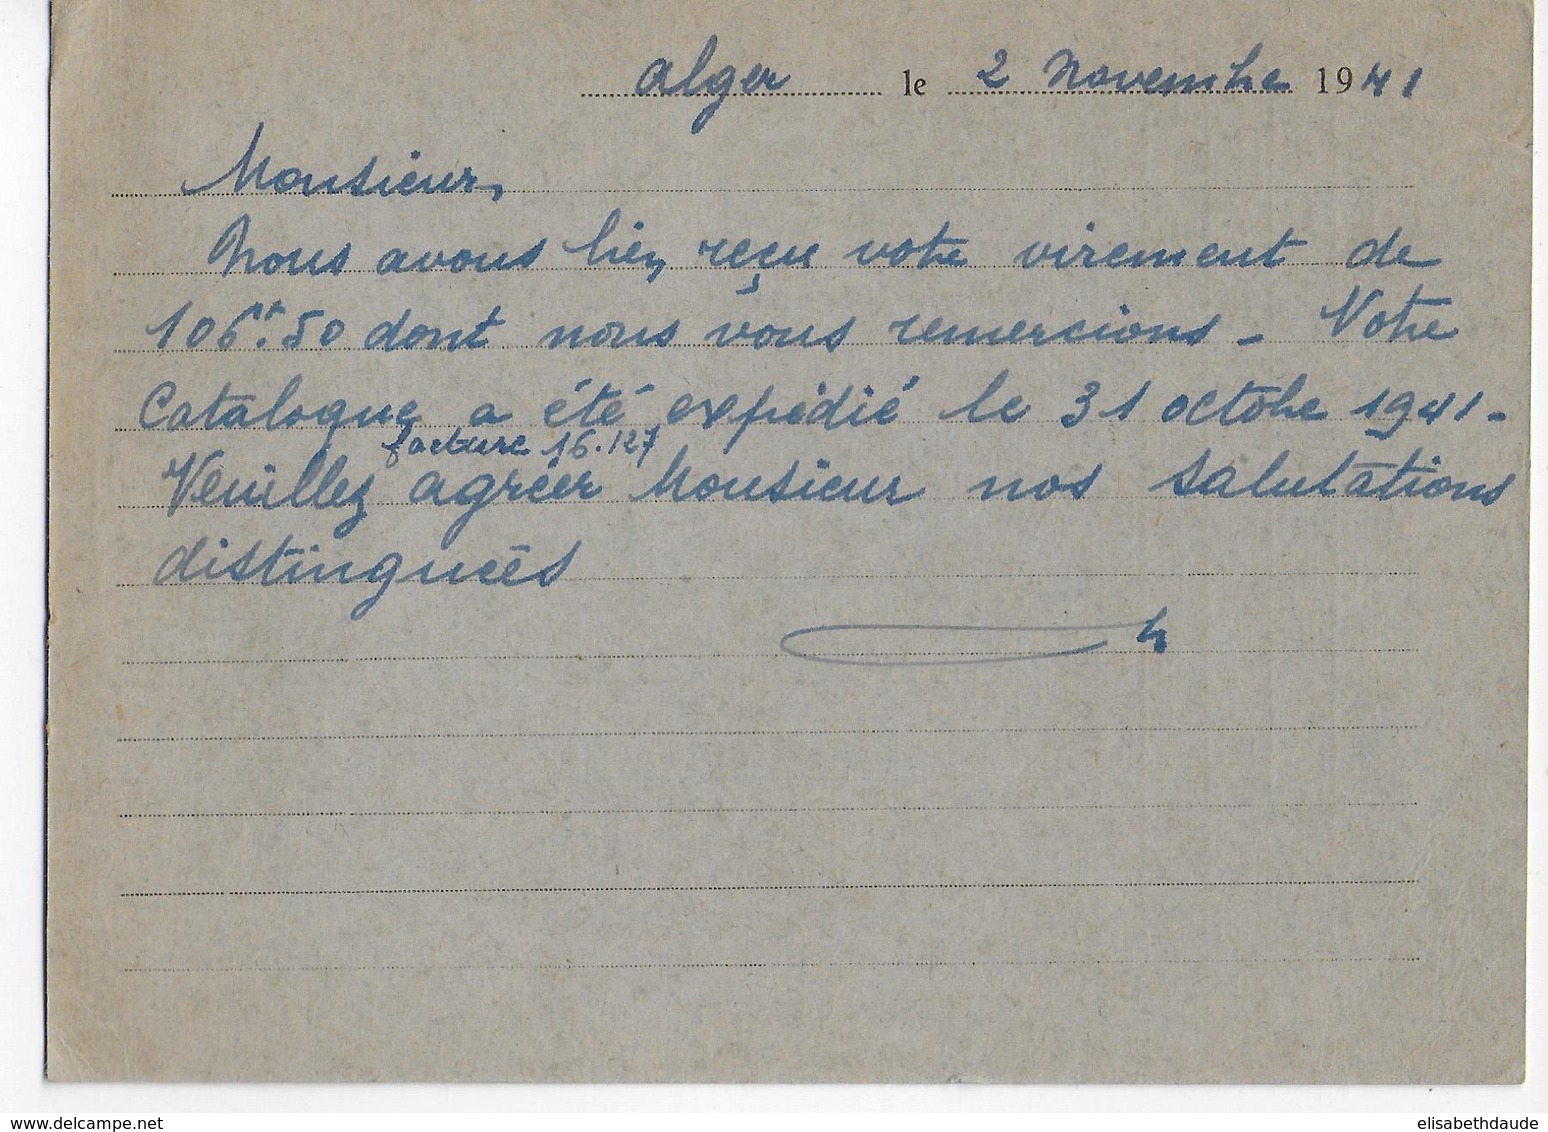 Alger le 2 Novembre 1941
Monsieur,
Nous avons bien reçu votre virement de
106frs.50 dont nous vous remercions - Votre
Catalogue a été expédié le 31 octobre 1941 -
facture 16.127
Veuillez agréer Monsieur nos salutations
distinguées
delcampe.net
elisabethdaude